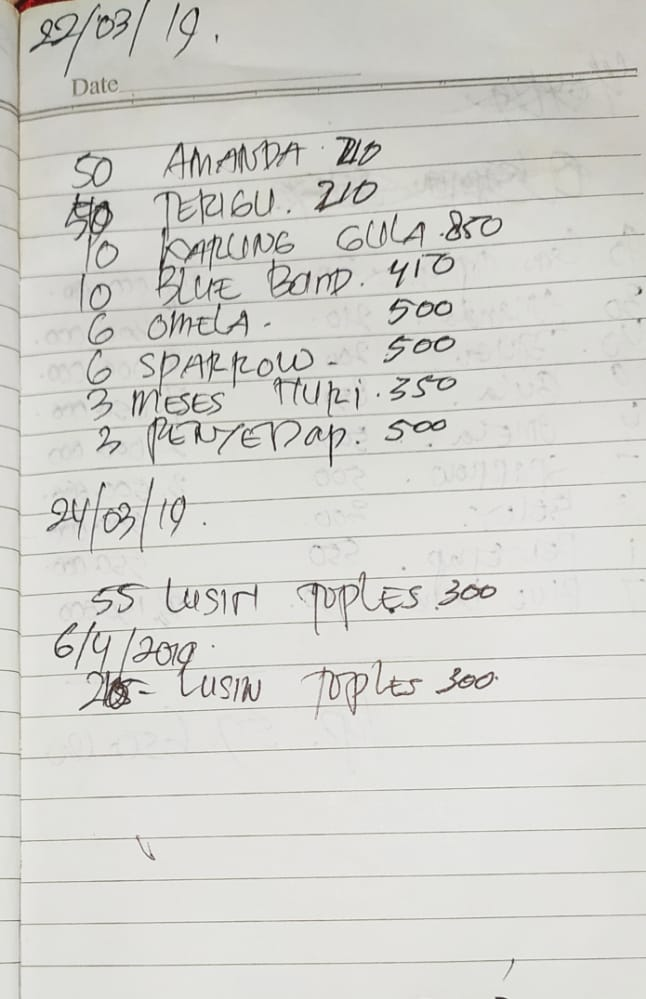 22/03/19.
Date
50 AMANDA. 210
50 TERIGU. 210
10 KARUNG GULA. 850
10 BLUE BAND. 410
6 OMELA. 500
6 SPARROW - 500
3 MESES TTURI. 350
3 PENYEDap. 500
24/03/19.
55 LUSIN TOPLES. 300
6/4/2019.
LUSIN TOPPLES 300.